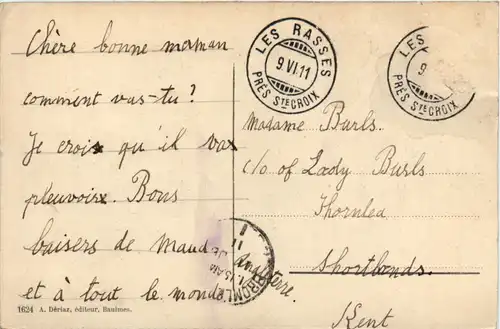 Chère bonne maman
comment vas-tu?
Je crois qu'il va
pleuvoir. Bons
baisers de Maud
et à tout le monde
1624 A. Dériaz, éditeur, Baulmes.
LES RASSES
9 VI. 11
PRÈS STE CROIX
LES
9
PRÈS STE CROIX
Madame Burls.
c/o of Lady Burls
Thornlea
Shortlands.
Kent
Angleterre.
BROMLEY